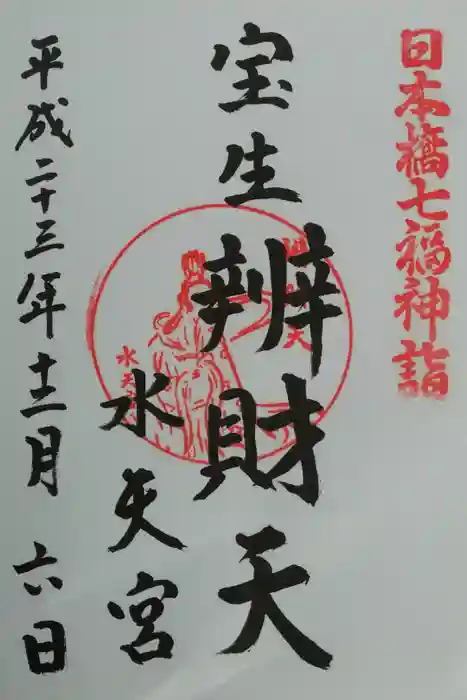 日本橋七福神詣
宝生辨財天
水天宮
平成二十三年十二月六日